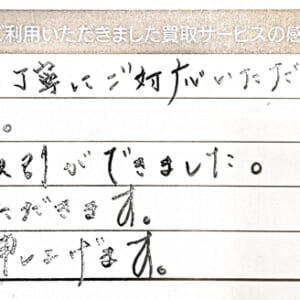 ご利用いただきました買取サービスの感
丁寧にご対応いただ
。
取引ができました。
ただきます。
申し上げます。